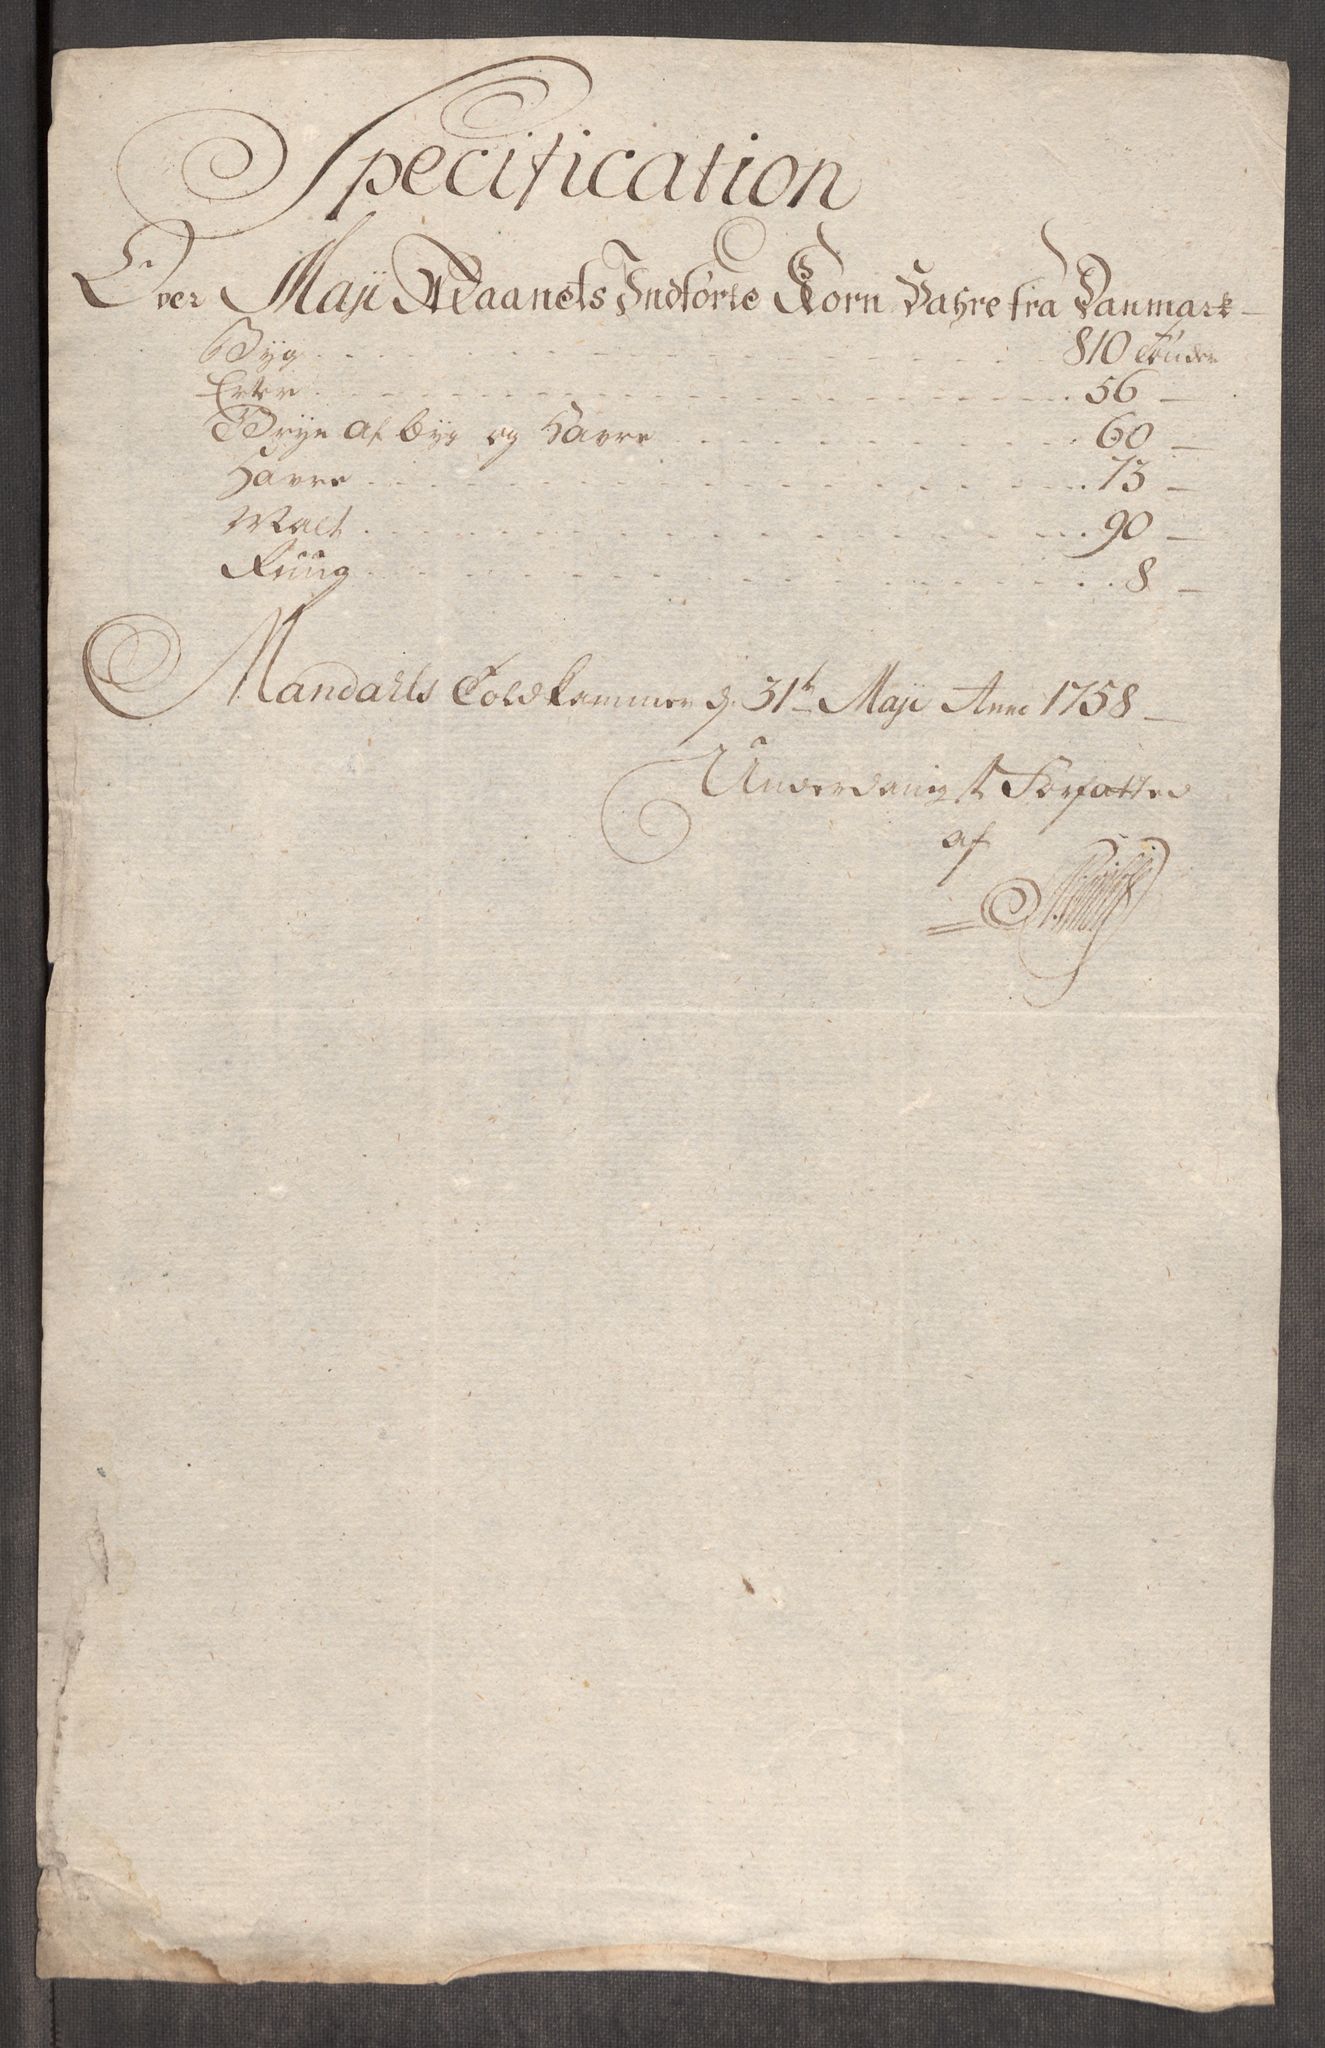 Specification
Over Maji Maanets Indførte Korn Vahre fra Danmark
Byg 810 tønder
Erter 56 —
Gryn af byg og Havre 60 —
Havre 73 —
Malt 90 —
Ruug 8 —
Mandahls Toldkammer d. 31te Maji Anno 1758
Underdanigst Forfatted
af